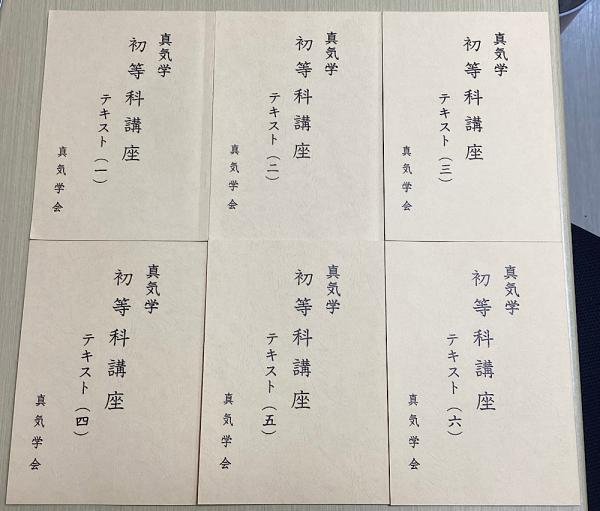 真気学
初等科講座
テキスト（一）
真気学会
真気学
初等科講座
テキスト（二）
真気学会
真気学
初等科講座
テキスト（三）
真気学会
真気学
初等科講座
テキスト（四）
真気学会
真気学
初等科講座
テキスト（五）
真気学会
真気学
初等科講座
テキスト（六）
真気学会